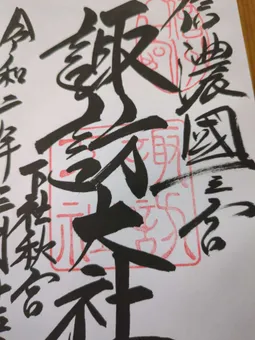 信濃國三之宮
諏訪大社
下社秋宮
令和二年三月十三
諏訪
大社